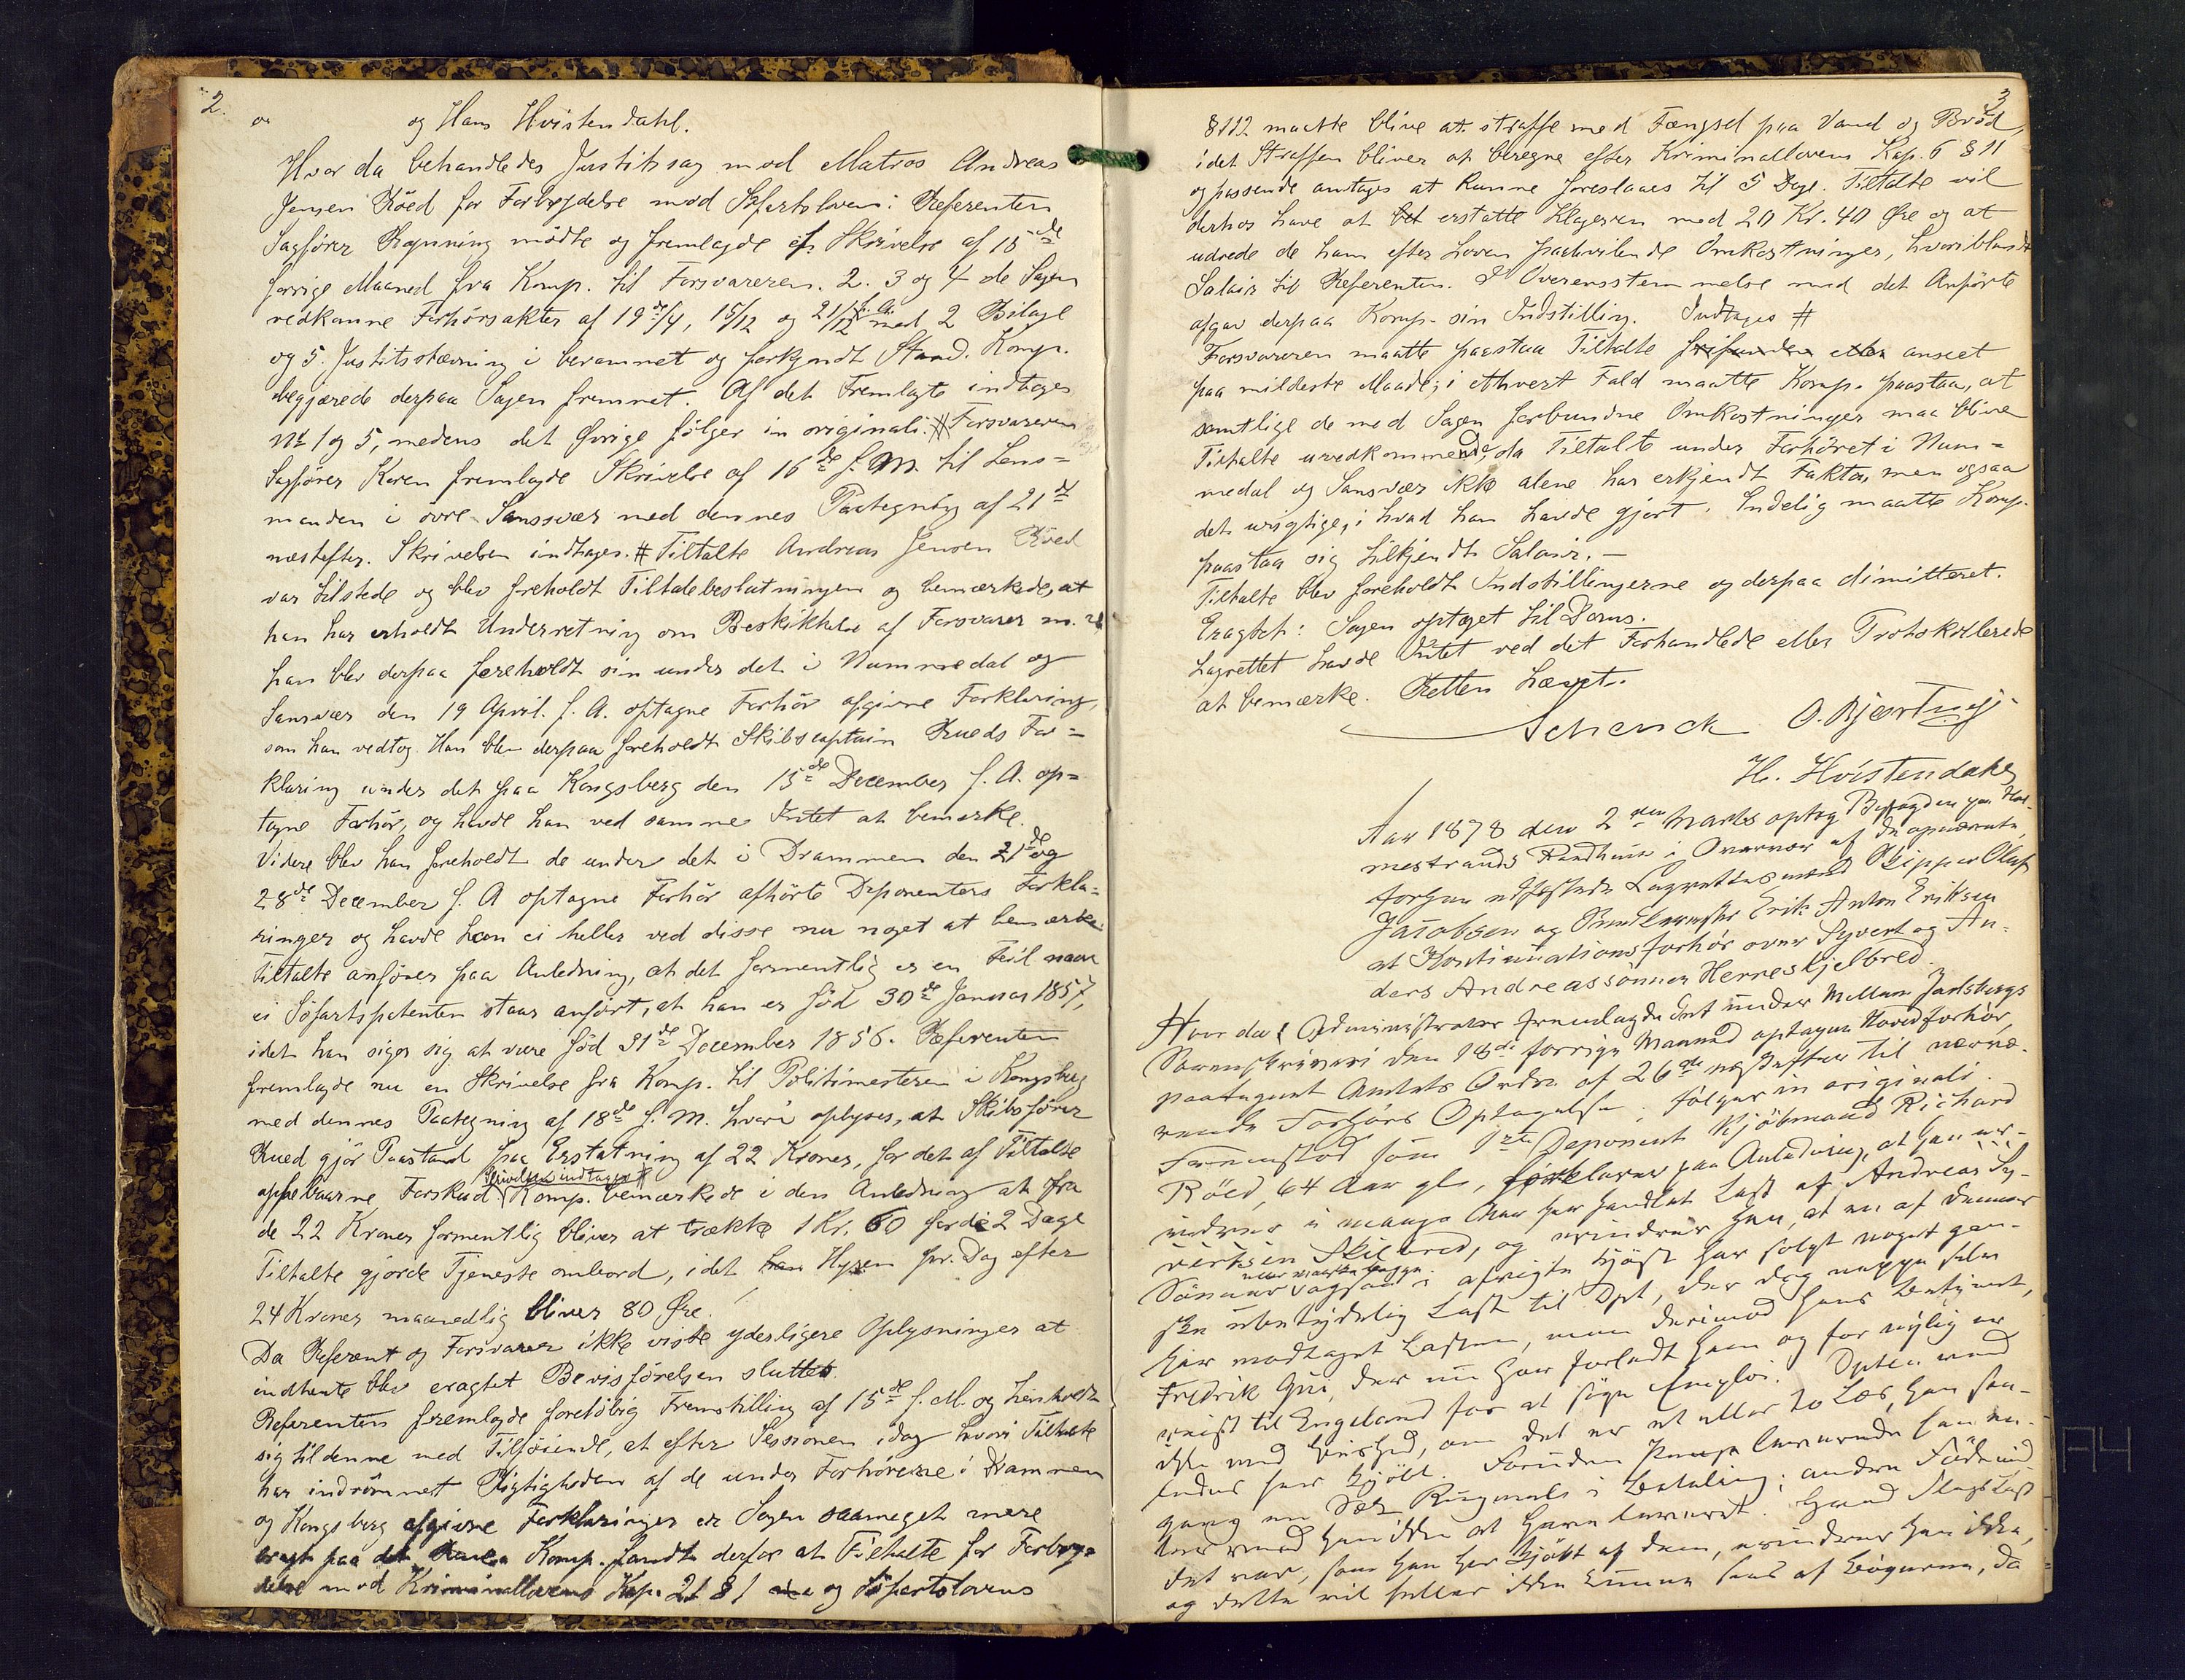 2.
og Hans Hvistendahl.
Hvor da behandledes Justitssag mod Matros Andreas
Jensen Röed for Forbrydelse mod Söfartsloven: Referenten
Sagförer Rynning mödte og fremlagde 1. Skrivelse af 15de
forrige Maaned fra Komp. til Forsvareren. 2. 3 og 4 de Sagen
vedkomne Forhörsakter af 19de/4, 15/12 og 21/12 f. A. med 2 Bilage
og 5. Justitsstævning i beramet og forkyndt Stand. Komp.
begjærede derpaa Sagen fremmet. Af det Fremlagte indtages
No 1 og 5, medens det Övrige fölger in originali. # Forsvareren
Sagförer Koren fremlagde Skrivelse af 16de f. M. til Lens-
manden i övre Sanssvær med dennes Paategning af 21de
næstefter. Skrivelsen indtages. # Tiltalte Andreas Jensen Röed
var tilstede og blev foreholdt Tiltalebeslutningen og bemærkede, at
han har erholdt Underretning om Beskikkelse af Forsvarer m. v.
Han blev derpaa foreholdt sin under det i Nummedal og
Sansvær den 19 April f. A. optagne Forhör afgivne Forklaring,
som han vedtog. Han blev derpaa foreholdt Skibscaptain Rueds For=
klaring under det paa Kongsberg den 15de December f. A. op=
tagne Forhör, og havde han ved samme Intet at bemærke.
Videre blev han foreholdt de under det i Drammen den 21de og
28de December f. A optagne Forhör afhörte Deponenters Forkla=
ringer og havde han ei heller ved disse nu noget at bemærke.
Tiltalte anförer paa Anledning, at det formentlig er en Feil naar
ei Söfartspatenten staar anfört, at han er föd 30de Januar 1857,
idet han siger sig at være föd 31de December 1856. Referenten
fremlagde nu en Skrivelse fra Komp. til Politimesteren i Kongsberg
med dennes Paategning af 18de f. M. hvori oplyses, at Skibsförer
Rued gjör Paastand paa Erstatning af 22 Kroner, for det af Tiltalte
Skrivelsen indtages #
oppebaarne Forskud. Komp. bemærkede i den Anledning at fra
de 22 Kroner formentlig bliver at trække 1 Kr. 60 for de 2 Dage
Tiltalte gjorde Tjeneste ombord, idet han Hyren pr. Dag efter
24 Kroner maanedlig bliver 80 Öre.
Da Referent og Forsvarer ikke vidste yderligere Oplysninger at
indhente blev eragtet Bevisförelsen sluttet.
Referenten fremlagde foreløbig Fremstilling af 15de f. M. og henholdt
sig til denne med Tilföiende, at efter Sessionen idag hvori Tiltalte
har indrömmet Rigtigheden af de under Forhörene i Drammen
og Kongsberg afgivne Forklaringer er Sagen saameget mere
Komp. fandt derfor at Tiltalte for Forbry=
delse mod Kriminallovens Kap. 21 § 1 og Söfartslovens
3
§ 112 maatte blive at straffe med Fængsel paa Vand og Bröd,
idet Straffen bliver at beregne efter Kriminallovens Kap. 6 § 11
og passende antages at kunne foreslaaes til 5 Dage. Tiltalte vil
derhos have at erstatte Klageren med 20 Kr. 40 Öre og at
udrede de ham efter Loven paahvilende Omkostninger, hvoriblandt
Salair til Referenten. I Overensstemmelse med det Anförte
afgav derpaa Komp. sin Indstilling. Indtages #
Forsvareren maatte paastaa Tiltalte frifunden eller anseet
paa mildeste Maade; i ethvert Fald maatte Komp. paastaa, at
samtlige de med Sagen forbundne Omkostninger maa blive
Tiltalte uvedkommende, da Tiltalte under Forhöret i Num=
medal og Sansvær ikke alene har erkjendt Fakta, men ogsaa
det urigtige, i hvad han havde gjort. Endelig maatte Komp.
paastaa sig tilkjendt Salair. —
Tiltalte blev foreholdt Indstillingerne og derpaa dimitteret.
Eragtet: Sagen optaget til Doms.
Lagrettet havde Intet ved det Forhandlede eller Protokollerede
at bemærke. Retten hævet.
Schenck O. Bjertnæs
H. Hvistendahl
Aar 1878 den 2den Marts optog Byfogden paa Hol-
mestrands Raadhuus i Overvær af de opnævnte,
forhen edfæstede Lagrettesmænd Skipper Oluf
Jacobsen og Buntmager Erik Anton Eriksen
at Kontinuationsforhör over Syvert og An-
ders Andreassönner Herreskjelbred.
Hvor da: Administrator fremlagde det under Mellem Jarlsbergs
Sorenskriveri den 18de forrige Maaned optagne Hovedforhör,
paategnet Amtets Ordre af 26de næstefter til nærvæ-
rende Forhörs Optagelse; fölger in originali.
Fremstod som 1ste Deponent Kjöbmand Richard
Röed, 64 Aar gl., forklarer paa Anledning, at han er-
indrer i mange Aar har handlet Last af Andreas Sy-
vertsen Skilbred, og erindrer han, at en af dennes
Sönner ogsaa i afvigte Höst har solgt noget gan-
ske ubetydelig Last til Dpt, der dog neppe selv
har modtaget Lasten, men derimod hans Betjent,
Fredrik Gui, der nu har forladt ham og for nylig er
reist til Engeland for at söge Employ. Dpten veed
ikke med Vished, om det er et eller to Læs, han saa-
ledes har kjöbt. Foruden Penge leverede han en-
gang en Sæk Rugmeel i Betaling; anden Födemid-
ler veed han ikke at have leveret. Hvad Slags Last
det var, som han har kjöbt af dem, erindrer han ikke,
og dette vil heller ikke kunne sees af Bögerne, da